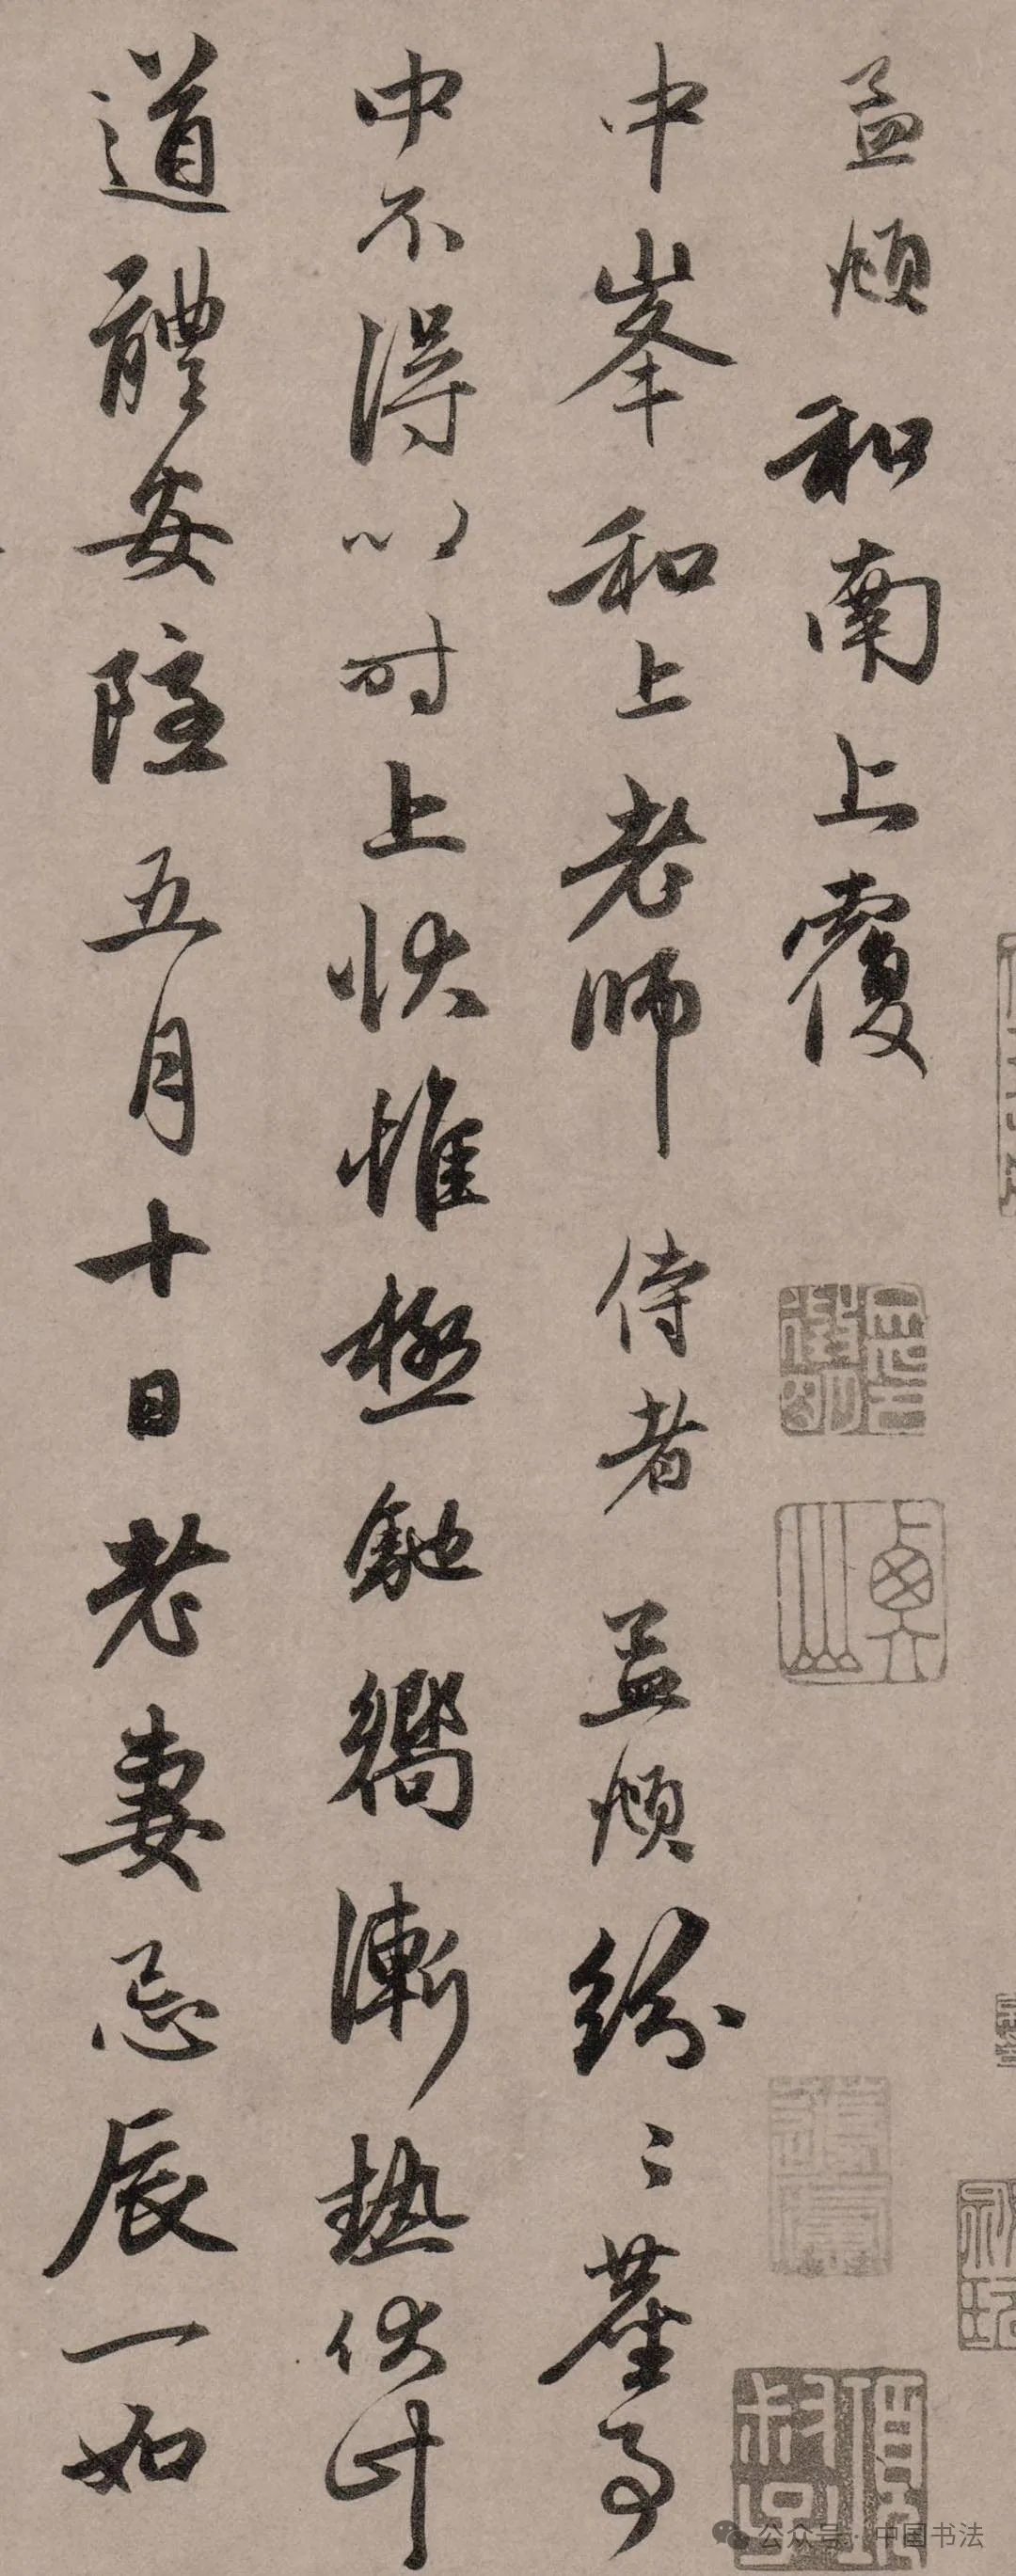 孟頫和南上覆
中峯和上老師侍者孟頫紛〻塵事
中不得以时上状惟極馳嚮漸热伏计
道體安隱五月十日老妻忌辰一如
公众号 · 中国书法